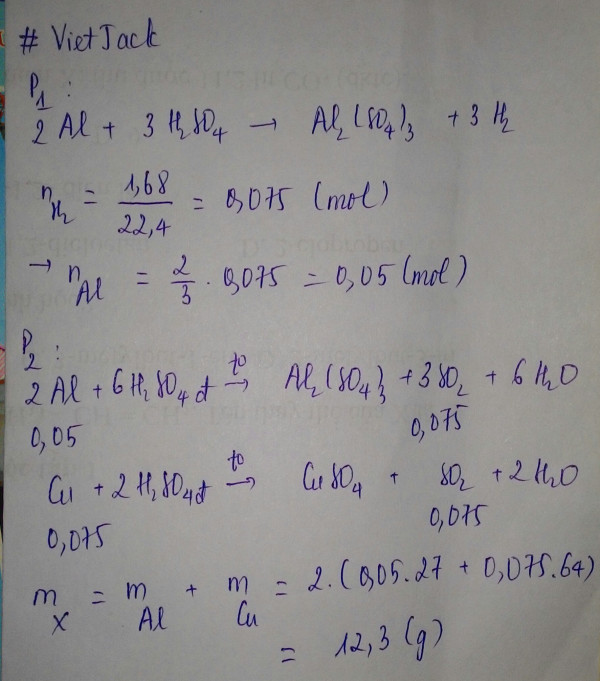 # VietJack
P₁:
2 Al + 3 H₂SO₄ → Al₂(SO₄)₃ + 3 H₂
n_H₂ = 1,68/22,4 = 0,075 (mol)
→ n_Al = 2/3 . 0,075 = 0,05 (mol)
P₂:
2 Al + 6 H₂SO₄ đ →(t°) Al₂(SO₄)₃ + 3SO₂ + 6 H₂O
0,05 0,075
Cu + 2 H₂SO₄đ →(t°) CuSO₄ + SO₂ + 2 H₂O
0,075 0,075
m_X = m_Al + m_Cu = 2.(0,05.27 + 0,075.64)
= 12,3 (g)